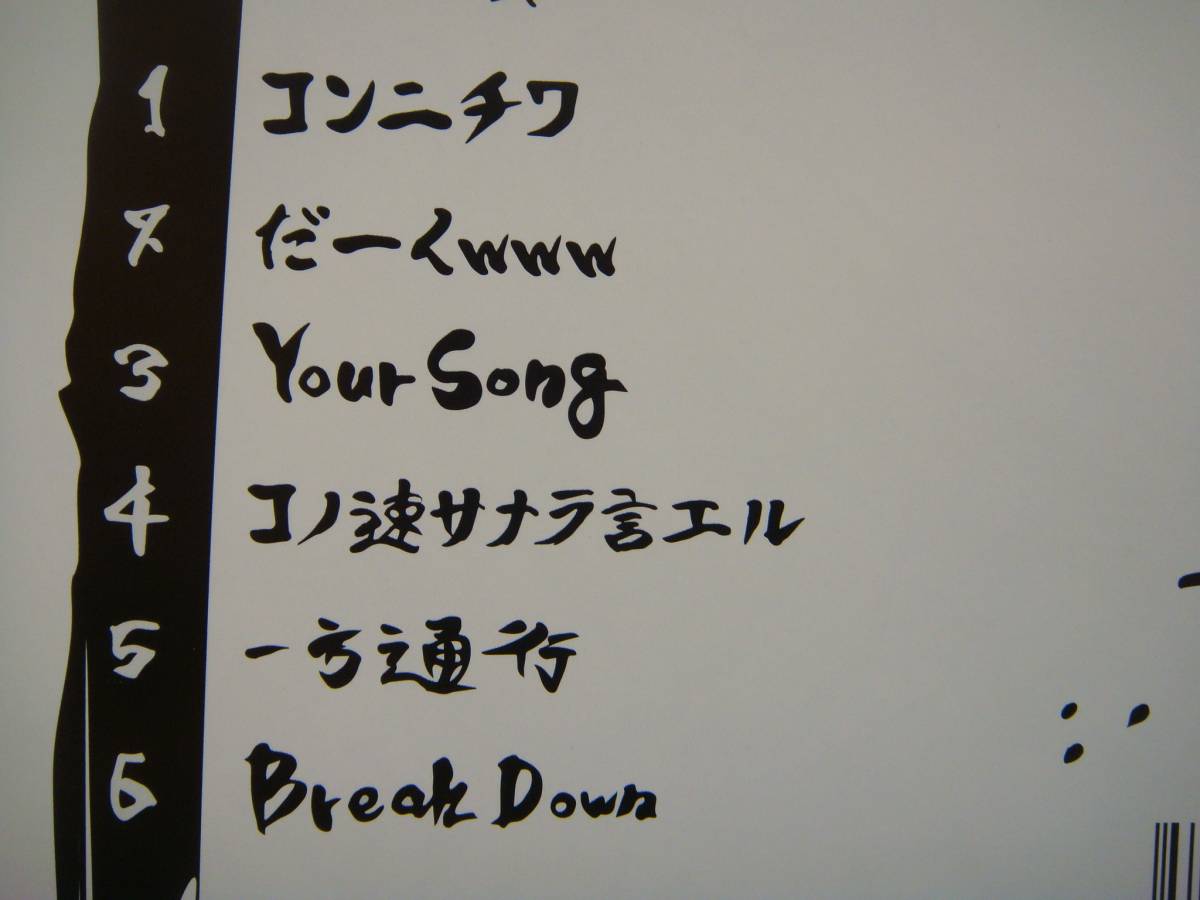 1 コンニチワ
2 だーくwww
3 Your Song
4 コノ速サナラ言エル
5 一方通行
6 Break Down